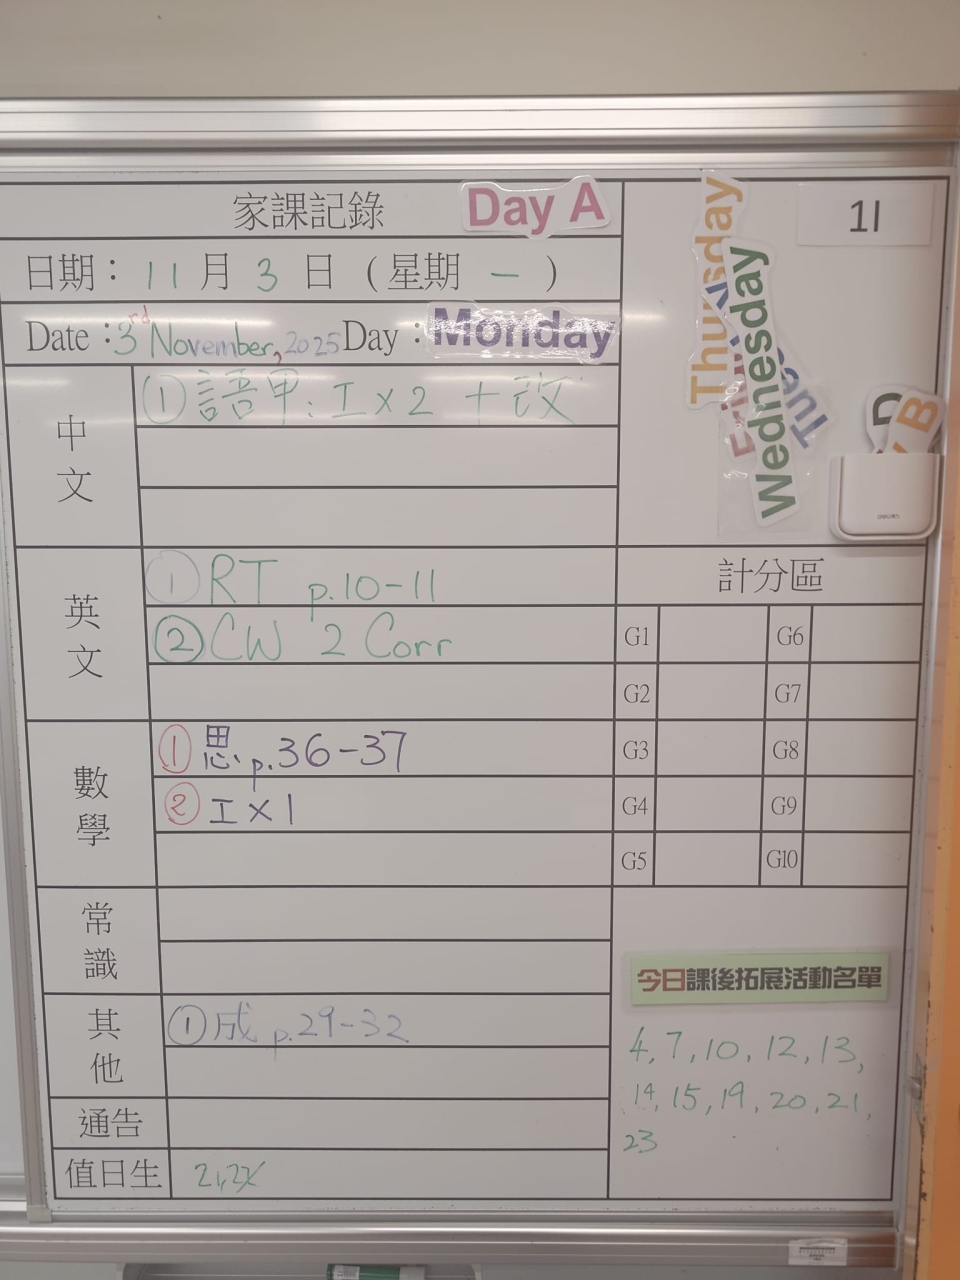 家課記錄 Day A
1I
日期：11月3日（星期一）
Date：3rd November, 2025 Day：Monday
Thursday
Wednesday
Tues
D
B
中文
① 語甲：工×2 +改
英文
① RT p.10-11
② CW 2 Corr
數學
① 思 p.36-37
② 工×1
常識
其他
① 成 p.29-32
通告
值日生
計分區
G1 G6
G2 G7
G3 G8
G4 G9
G5 G10
今日課後拓展活動名單
4, 7, 10, 12, 13,
14, 15, 19, 20, 21,
23